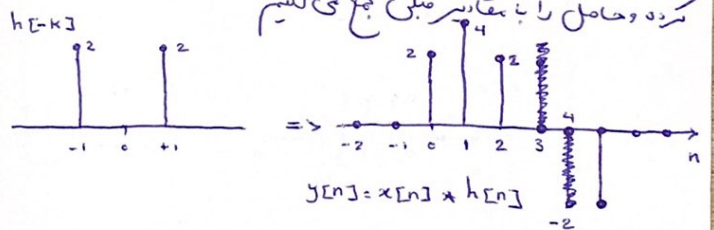 کرده و حاصل را با مقادیر قبلی جمع می کنیم
h[-k]
2 2
-1 0 +1
=>
2 4 2
-2 -1 0 1 2 3 4
n
-2
y[n]=x[n] * h[n]